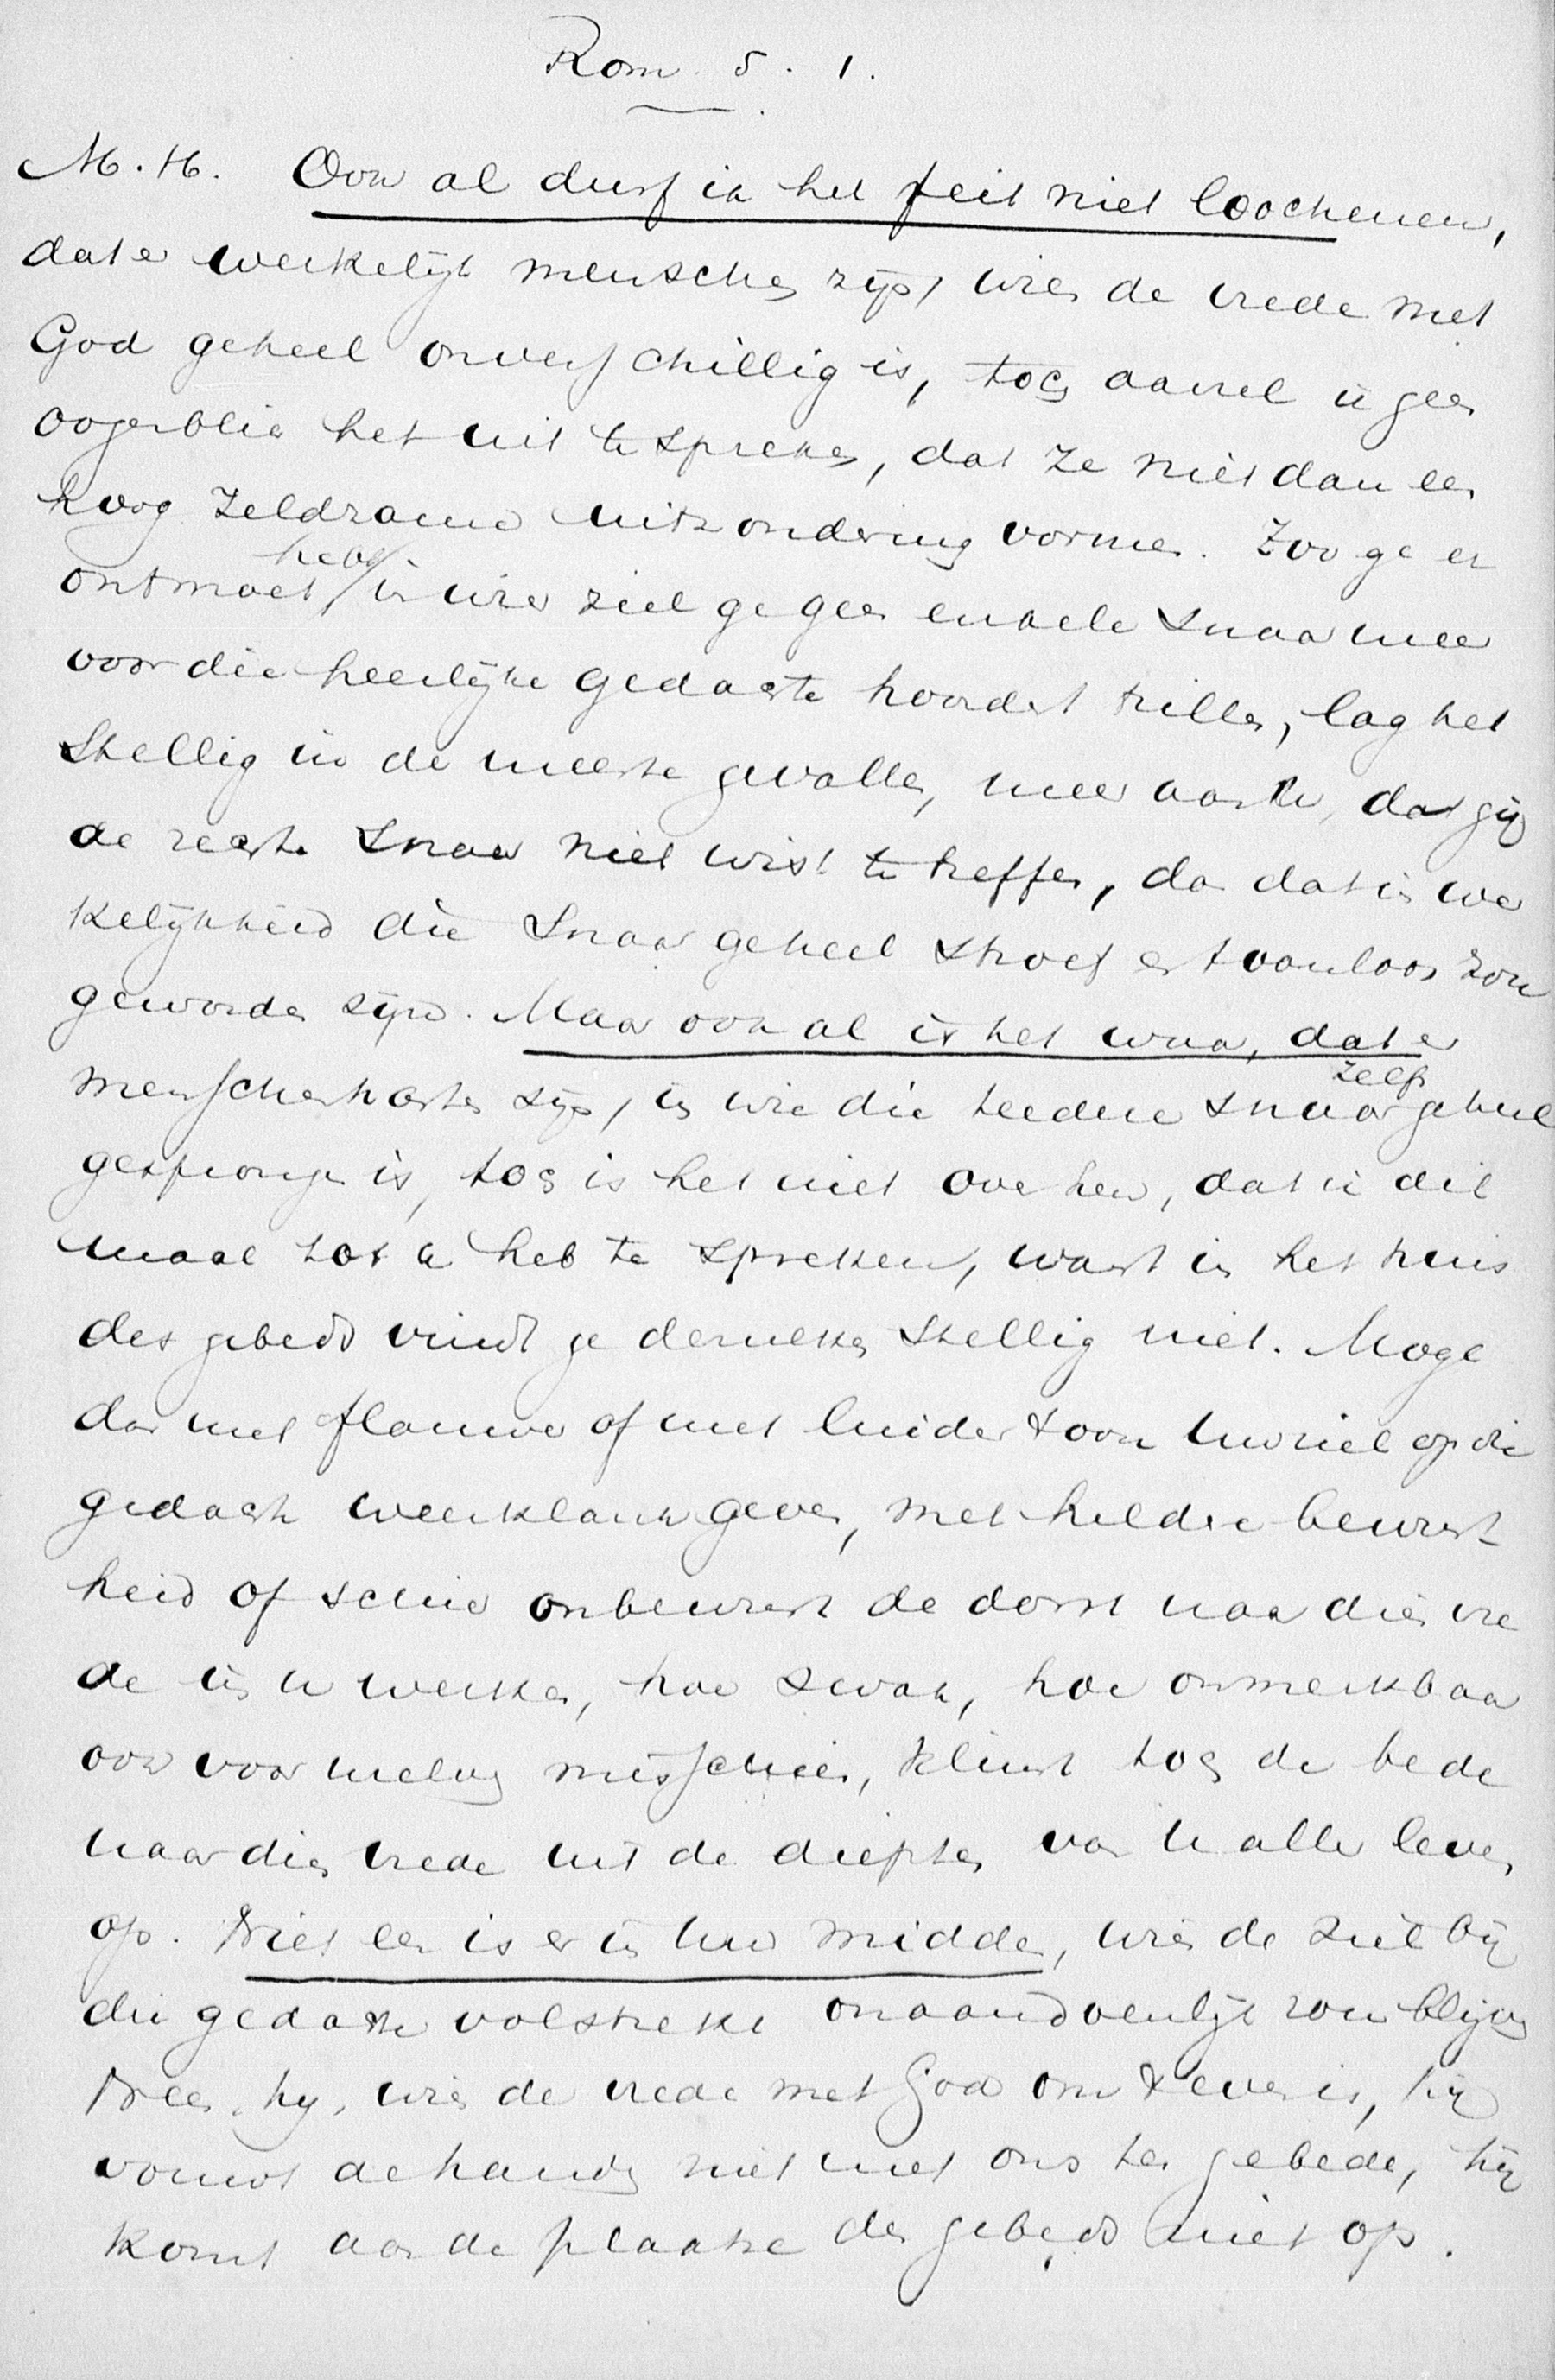 Rom. 5. 1.
M. H. Ook al durf ik het feit niet loochenen,
dat er werkelijk menschen zijn, wien de vrede met
God geheel onverschillig is, toch aarzel ik geen
oogenblik het uit te spreken, dat ze niet dan een
hoog zeldzame uitzondering vormen. Zoo ge er
ontmoet hebt, in wier ziel ge geen enkele snaar meer
voor die heerlijke gedachte hoordet trillen, lag het
stellig in de meeste gevallen, meer aan u, dat gij
de rechte snaar niet wist te treffen, dan dat in wer
kelijkheid die snaar geheel stroef en toonloos zou
geworden zijn. Maar ook al is het waar, dat er
menschenharten zijn, in wie die teedere snaar zelfs geheel
gesprongen is, toch is het niet over hen, dat ik dit
maal tot u heb te spreken, want in het huis
des gebeds vindt ge dezulken stellig niet. Moge
dan met flauwe of met luider toon uw ziel op die
gedachte weerklank geven, met heldere bewust
heid of schier onbewust de dorst naar dien vre
de in u werken, hoe zwak, hoe onmerkbaar
ook voor uzelven misschien, klinkt toch de bede
naar dien vrede uit de diepten van u aller leven
op. Niet een is er in uw midden, wien de ziel bij
die gedachte volstrekt onaandoenlijk zou blijven
Neen, hij, wien de vrede met God om 't even is, hij
vouwt de handen niet met ons ten gebede, hij
komt aan de plaatse des gebeds niet op.